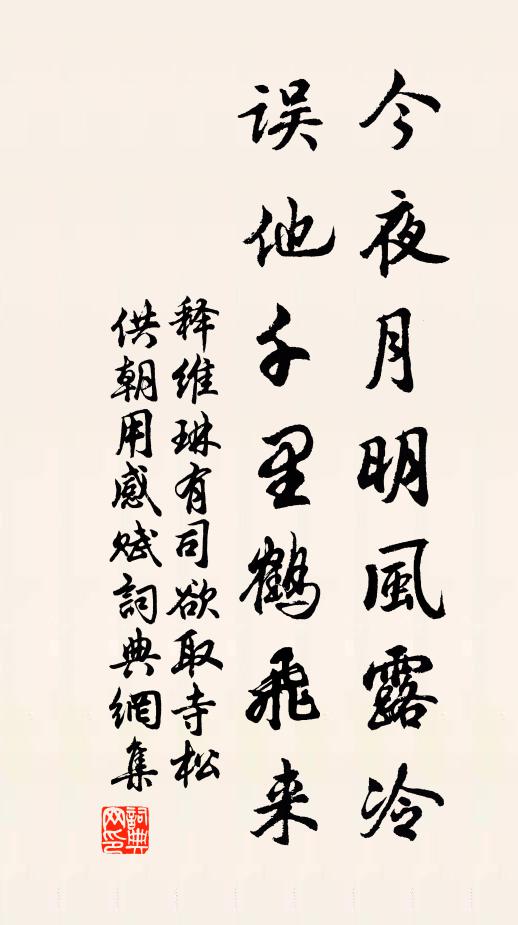 今夜月明風露冷
误他千里鹤飛来
释维琳有司欲取寺松
供朝用感赋詞典網集
詞典
网印